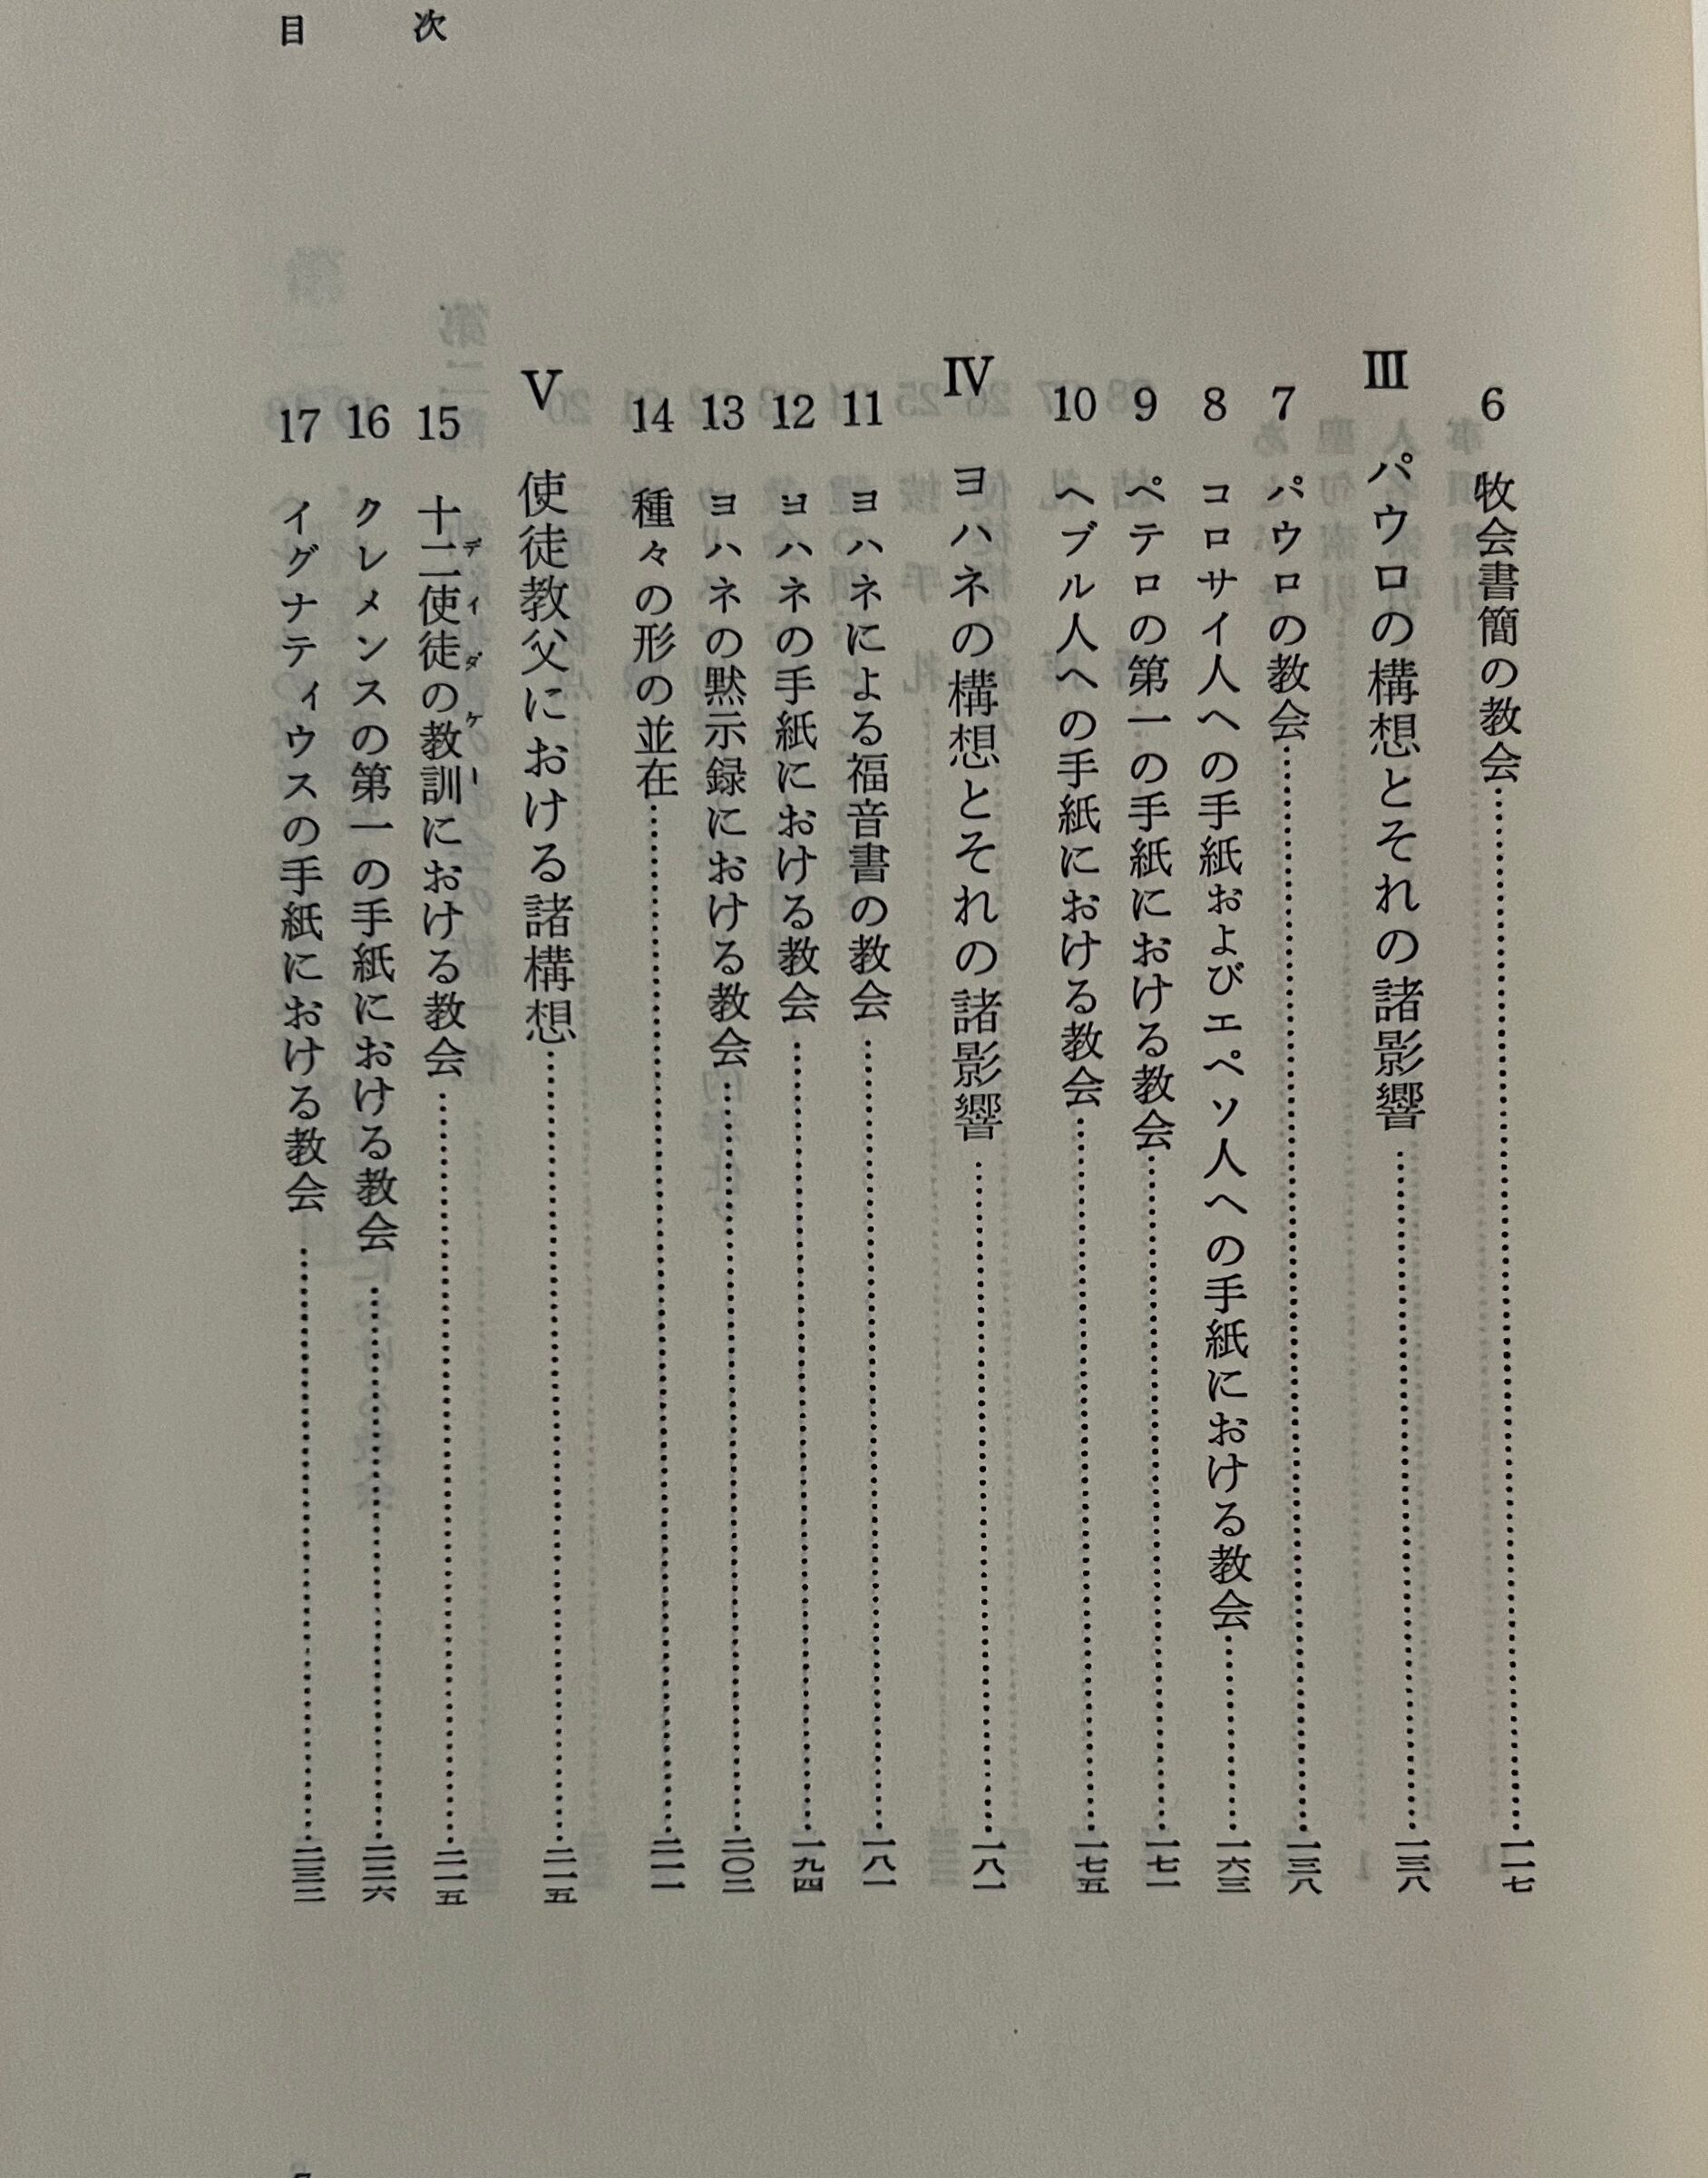 目次
6 牧会書簡の教会……一一七
Ⅲ パウロの構想とそれの諸影響……一三八
7 パウロの教会……一三八
8 コロサイ人への手紙およびエペソ人への手紙における教会……一六三
9 ペテロの第一の手紙における教会……一七一
10 ヘブル人への手紙における教会……一七五
Ⅳ ヨハネの構想とそれの諸影響……一八一
11 ヨハネによる福音書の教会……一八一
12 ヨハネの手紙における教会……一九四
13 ヨハネの黙示録における教会……二〇二
14 種々の形の並在……二一一
Ⅴ 使徒教父における諸構想……二一五
ディダケー
15 十二使徒の教訓における教会……二一五
16 クレメンスの第一の手紙における教会……二二六
17 イグナティウスの手紙における教会……二三二